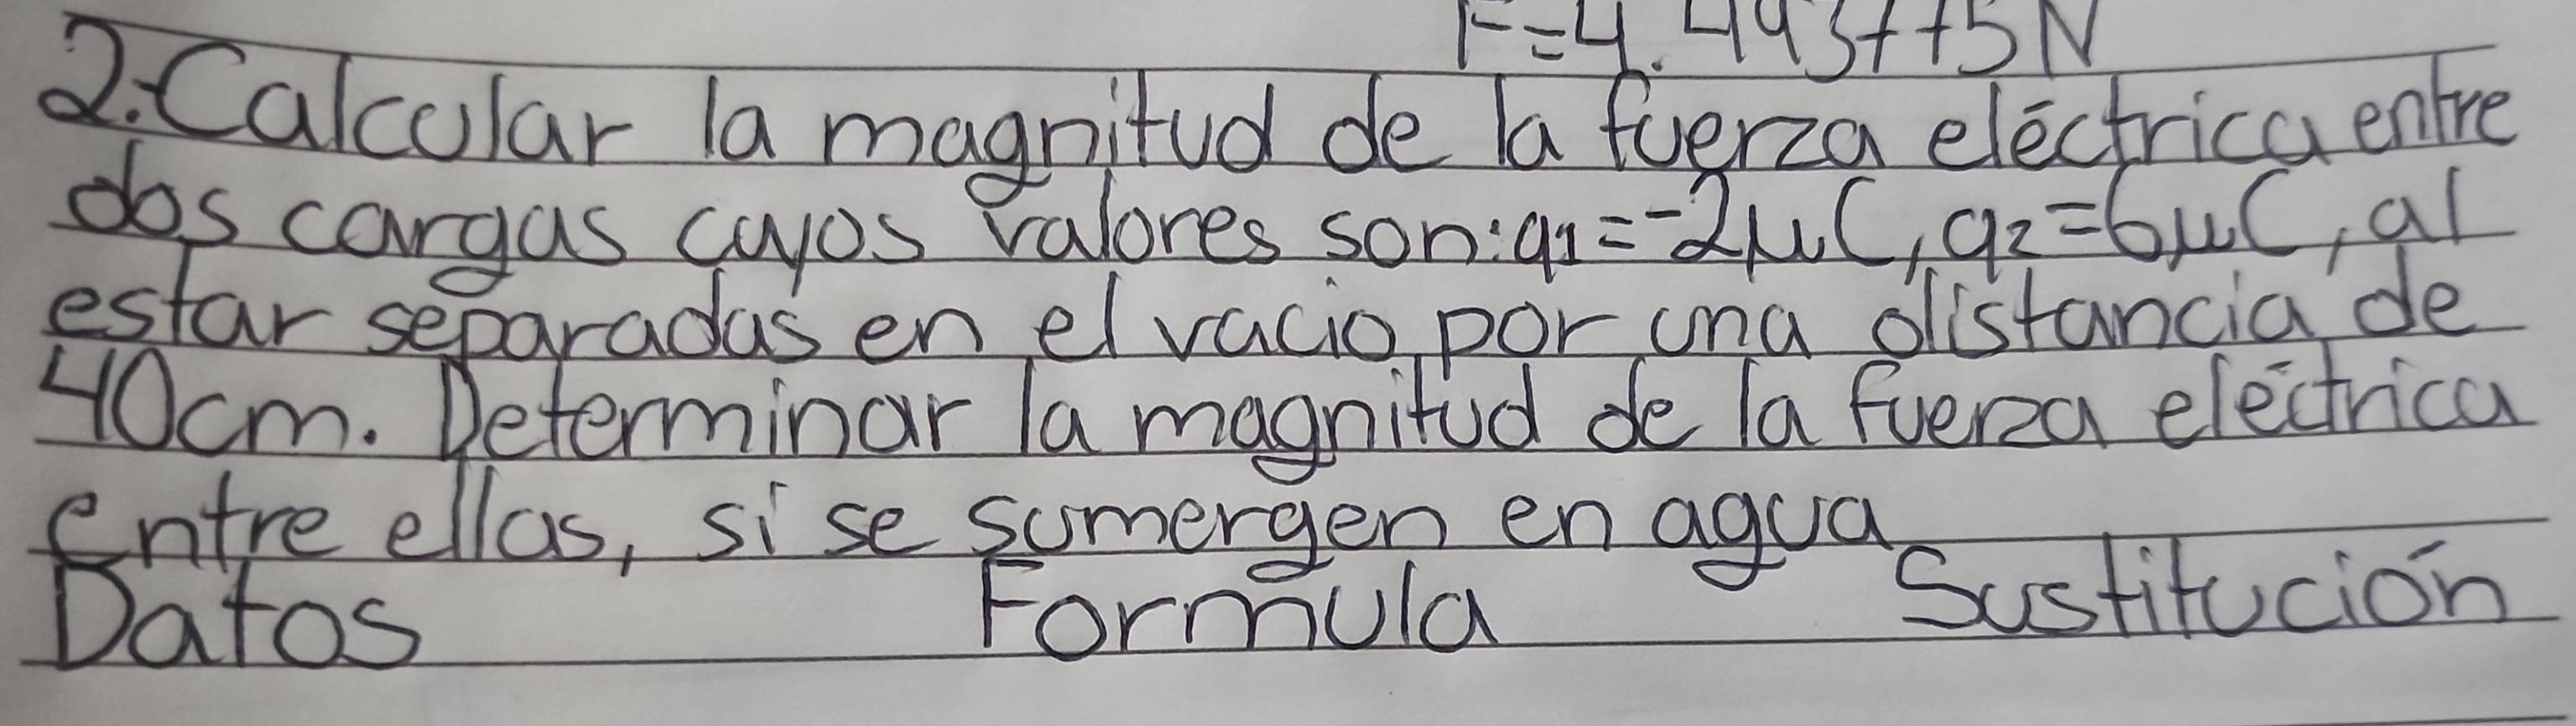 F=4.493775N
2.-Calcular la magnitud de la fuerza eléctrica entre
dos cargas cuyos valores son:q1=-2μC, q2=6μC, al
estar separadas en el vacio por una distancia de
40cm. Determinar la magnitud de la fuerza eléctrica
entre ellas, si se sumergen en agua
Datos Formula Sustitución